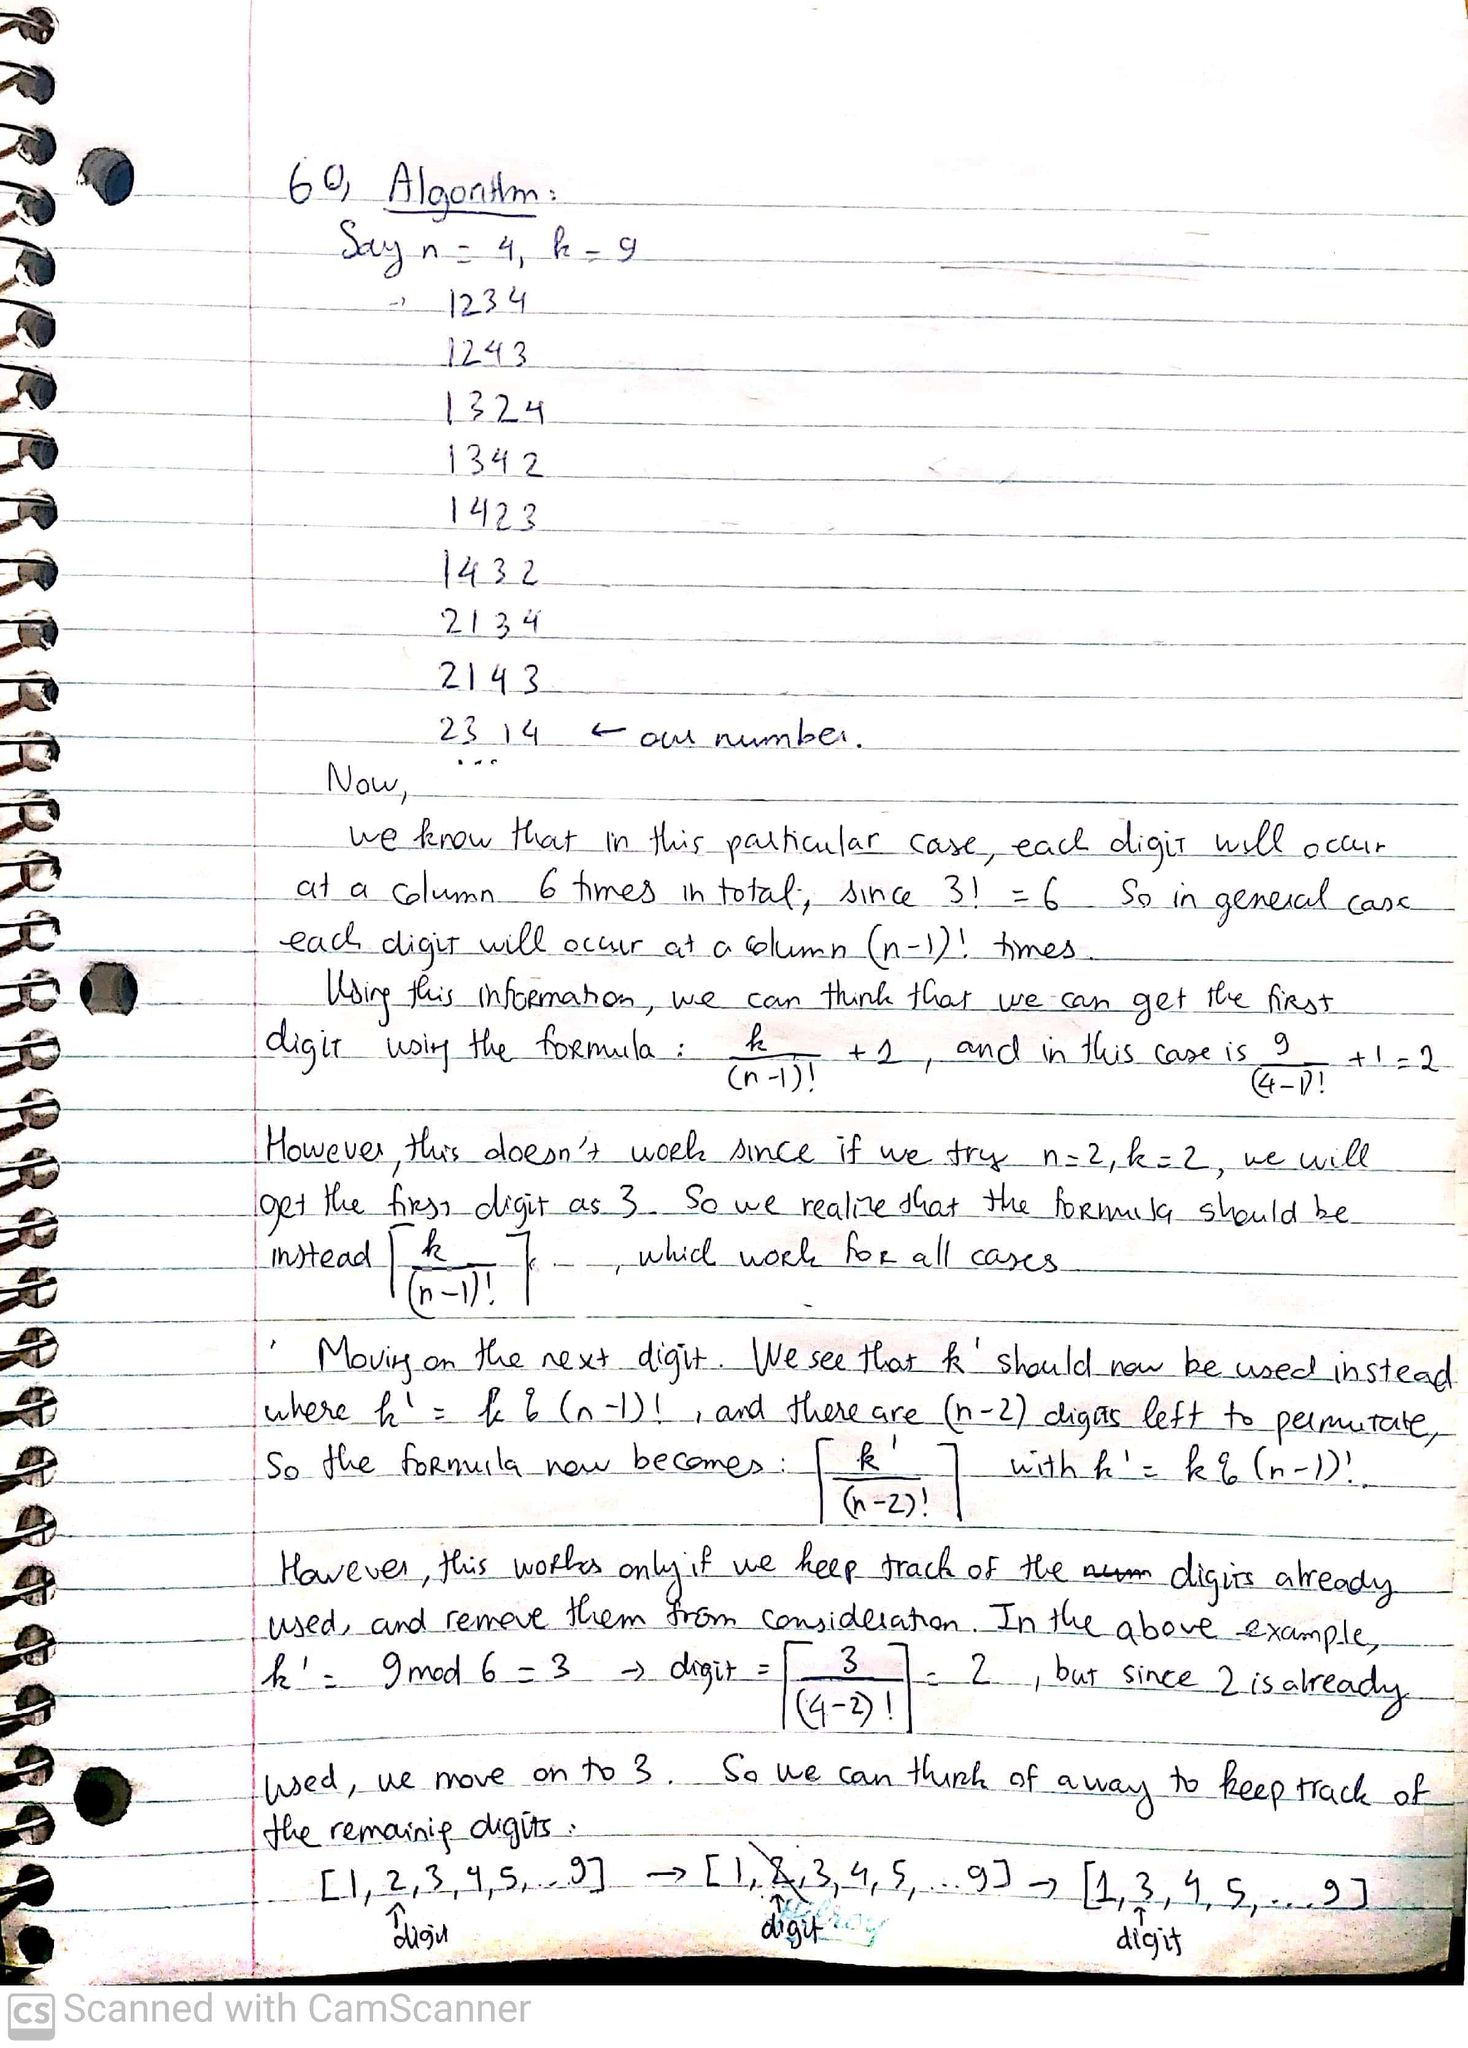 60, Algorithm:
Say n = 4, k = 9
→ 1234
1243
1324
1342
1423
1432
2134
2143
2314 ← our number.
...
Now,
we know that in this particular case, each digit will occur
at a column 6 times in total, since 3! = 6 So in general case
each digit will occur at a column (n-1)! times.
Using this information, we can think that we can get the first
digit using the formula : k/(n-1)! + 1, and in this case is 9/(4-1)! + 1 = 2
However, this doesn't work since if we try n=2, k=2, we will
get the first digit as 3. So we realize that the formula should be
instead ⌈k/(n-1)!⌉, which work for all cases
Moving on the next digit. We see that k' should now be used instead
where k' = k % (n-1)!, and there are (n-2) digits left to permutate,
So the formula now becomes: ⌈k'/(n-2)!⌉ with k' = k % (n-1)!.
However, this works only if we keep track of the digits already
used, and remove them from consideration. In the above example,
k' = 9 mod 6 = 3 → digit = ⌈3/(4-2)!⌉ = 2, but since 2 is already
used, we move on to 3. So we can think of a way to keep track of
the remainig digits:
[1, 2, 3, 4, 5, ... 9] → [1, 2, 3, 4, 5, ... 9] → [1, 3, 4, 5, ... 9]
↑ ↑ ↑
digit digit digit
CS Scanned with CamScanner